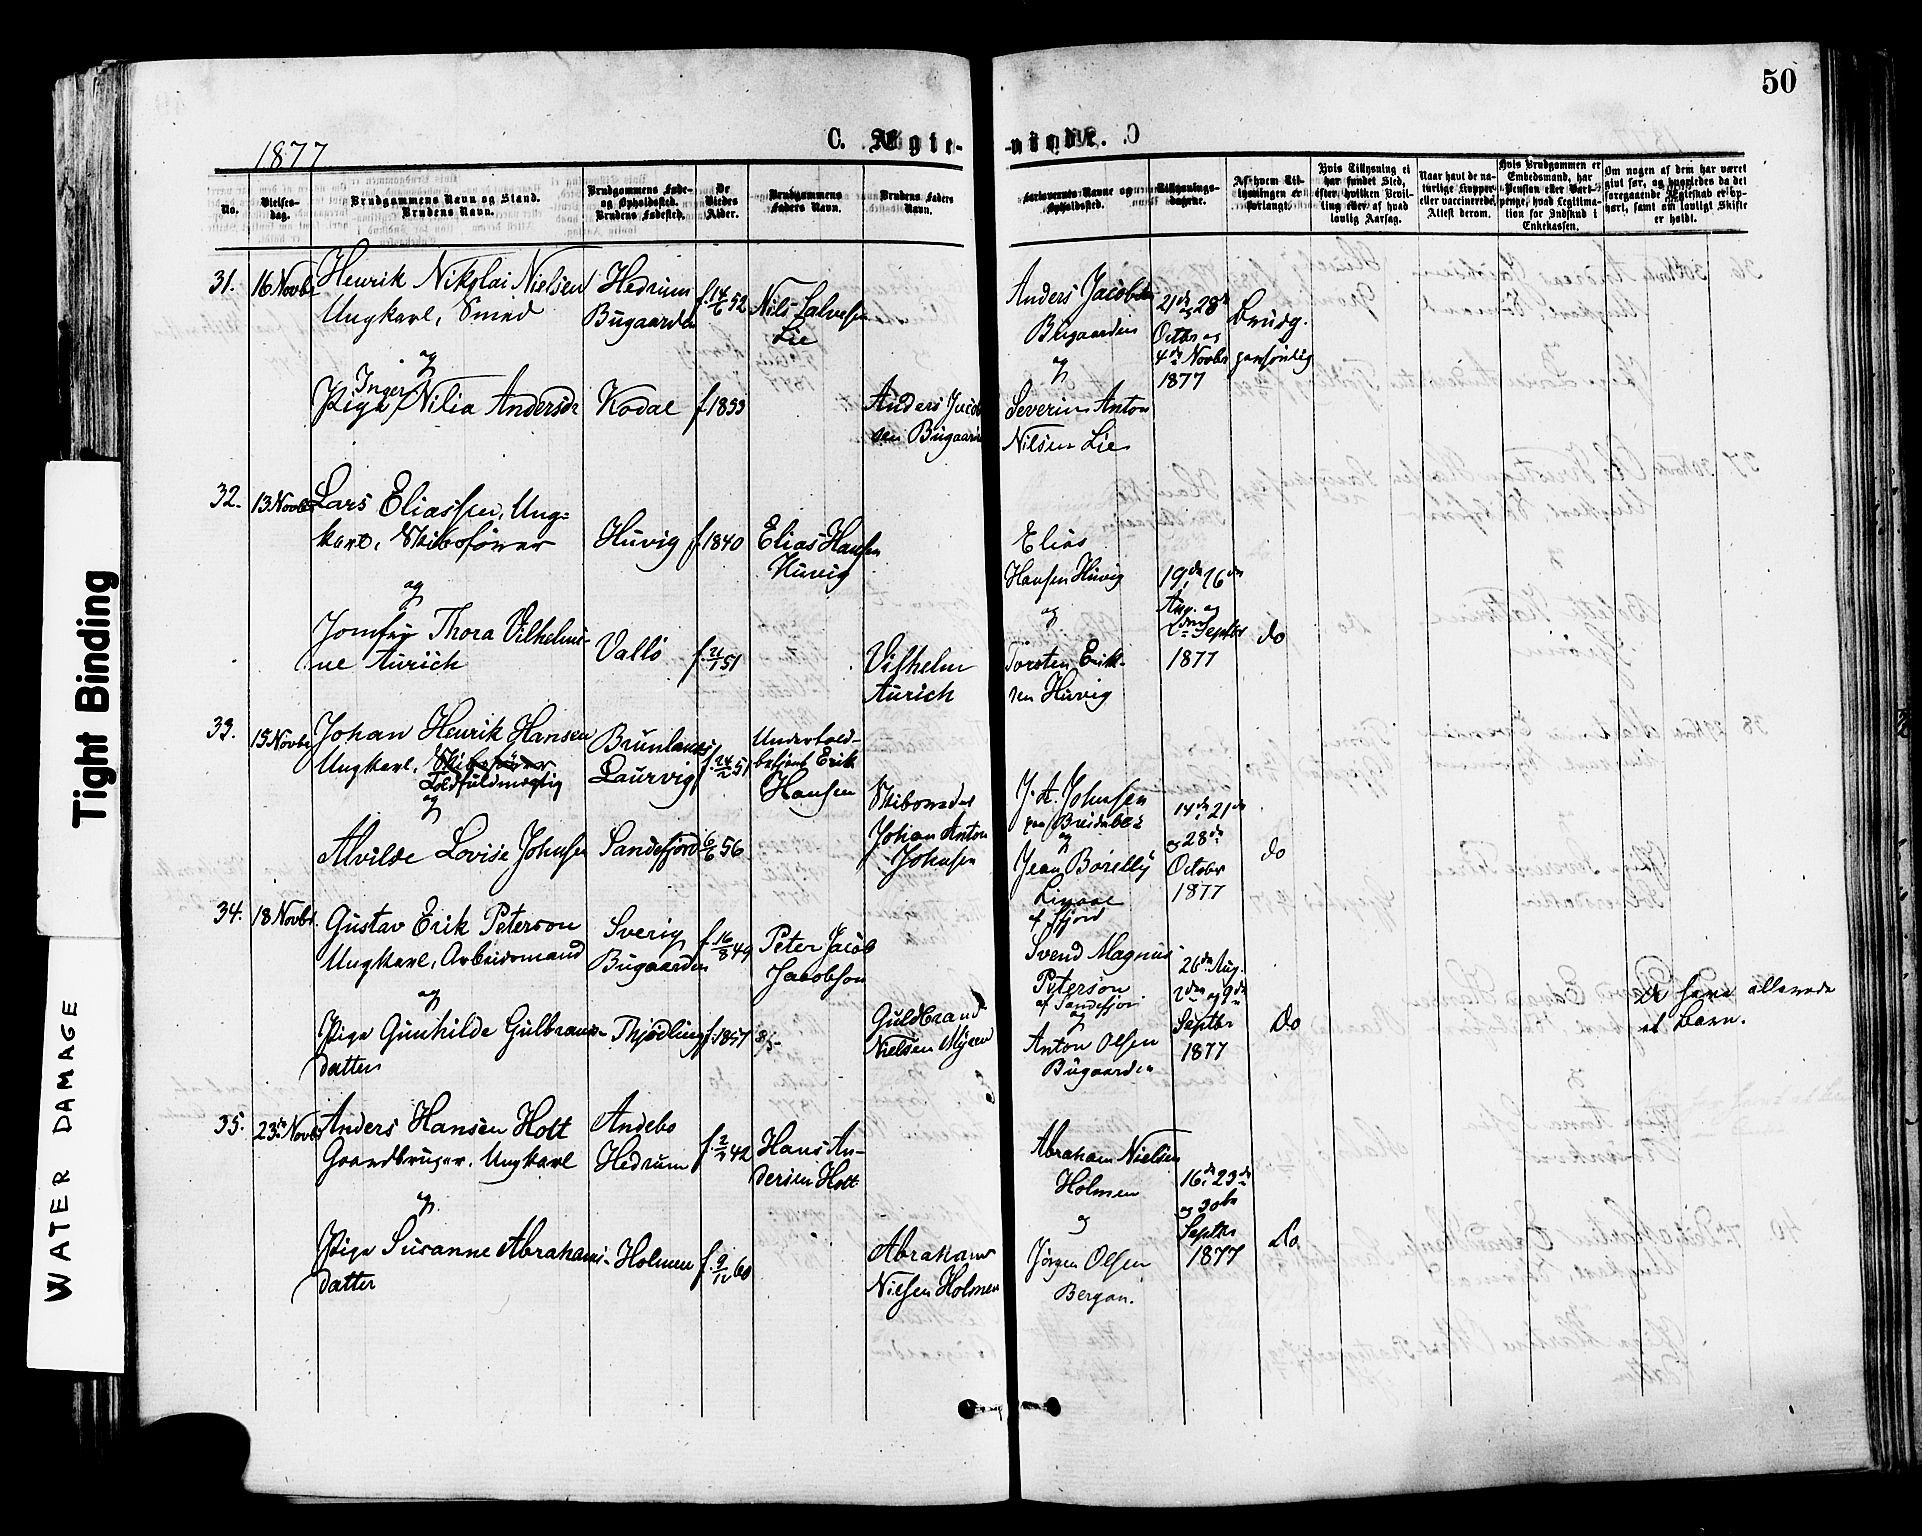 50
1877
C. Ægte-
-viede. C
No.
Vielses-
dag.
Brudgommens Navn og Stand.
Brudens Navn.
Brudgommens Føde-
og Opholdssted.
Brudens Fødested.
De
Viedes
Alder.
Brudgommens
Faders Navn.
Brudens Faders
Navn.
Forlovernes Navne og
Opholdssted.
Tillysnings-
dagene.
Af hvem Til-
lysningen er
forlangt.
Hvis Tillysning ei
har fundet Sted,
efter hvilken Bevil-
ling eller af hvad
lovlig Aarsag.
Naar havt de na-
turlige Kopper
eller vaccinerede.
Attest derom.
Hvis Brudgommen er
Embedsmand, har
Pension eller Vart-
penge, hvad Legitima-
tion for Indskud i
Enkekassen.
Om nogen af dem har været
gift før, og hvorledes da det
foregaaende Ægteskab er op-
hørt, samt om lovligt Skifte
er holdt.
31. 16 Novbr Henrik Nikolai Nielsen Hedrum f. 14/6 52 Nils Halvesen
Ungkarl, Smed Bugaarden Lie
og
Inger
Pige Nilia Andersdr Kodal f. 1853 Anders Jacob
sen Bugaarden
Anders Jacobsen 21de 28de Brudg.
Bugaarden Octbr og
og 4de Novbr personlig
1877
Severin Anton
Nilsen Lie
32. 13 Novbr Lars Eliassen, Ung=
karl, Skibsfører Huvig f. 1840 Elias Hansen
Huvig
og
Jomfru Thora Vilhelmi-
ne Aurich Vallö f. 21/1 51 Vilhelm
Aurich
Elias
Hansen Huvig 19de 26de
og Aug. og
2den Septbr do
Torsten Erik- 1877
sen Huvig
33. 15 Novbr Johan Henrik Hansen Brunlanes f. 24/2 51
Ungkarl, Skibsfører Laurvig Erik
Toldfuldmægtig Hansen
og
Alvilde Lovise Johnsen Sandefjord 6/6 56 Skibsreder
Johan Anton
Johnsen
J. A. Johnsen 14de 21de
og og 28de
Jean Octobr do
1877
34. 18 Novbr. Gustav Erik Peterson Sverig f. 16/8 49 Peter Jacob
Ungkarl, Arbeidsmand Bugaarden Jacobson
og
Pige Gunhilde Gulbrans- Thjødling f. 1857 8/5 Guldbrand
datter Nielsen Myren
Svend Magnus 26de Aug.
Peterson 2den og 9de
af Sandefjord Septbr
og 1877
Anton Olsen Do
Bugaarden
De have allerede
et Barn.
35. 23de Novbr Anders Hansen Holt Andebo f. 2/2 42 Hans An-
Gaardbruger, Ungkarl Hedrum dersen Holt
og
Pige Susanne Abrahams- Holmen f. 9/12 60 Abraham
datter Nielsen Holmen
Abraham Nielsen 16de 23de
Holmen og 30te
og Septbr
Jørgen Olsen 1877 Do
Bergan.
Tight Binding
WATER DAMAGE